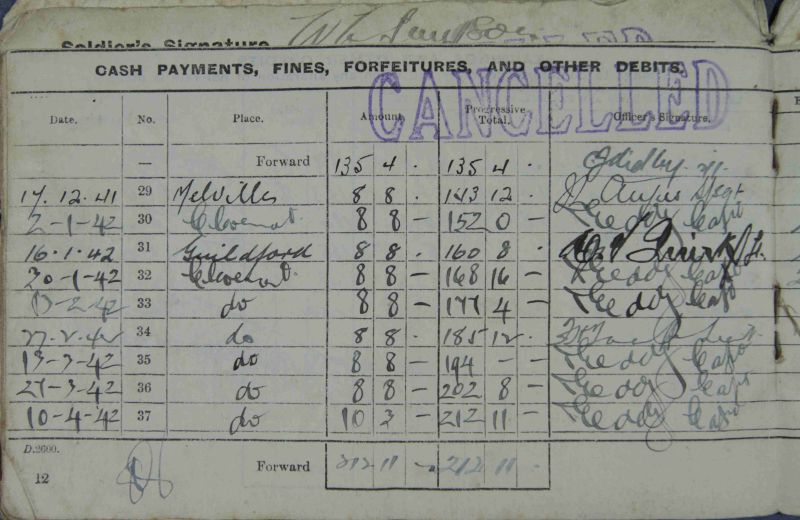 Soldier's Signature
CASH PAYMENTS, FINES, FORFEITURES, AND OTHER DEBITS.
CANCELLED
Date. No. Place. Amount. Progressive Total. Officer's Signature.
— Forward 135 4 . 135 4 .
17.12.41 29 Melville 8 8 . 143 12 .
2-1-42 30 8 8 — 152 0 — Capt
16.1.42 31 Guildford 8 8 . 160 8 .
30-1-42 32 8 8 — 168 16 — Capt
13-2-42 33 do 8 8 — 177 4 — Capt
27.2.42 34 do 8 8 . 185 12 .
13-3-42 35 do 8 8 — 194 — — Capt
27-3-42 36 do 8 8 — 202 8 — Capt
10-4-42 37 do 10 3 — 212 11 — Capt
D.2600.
12 Forward 212 11 — 212 11 .